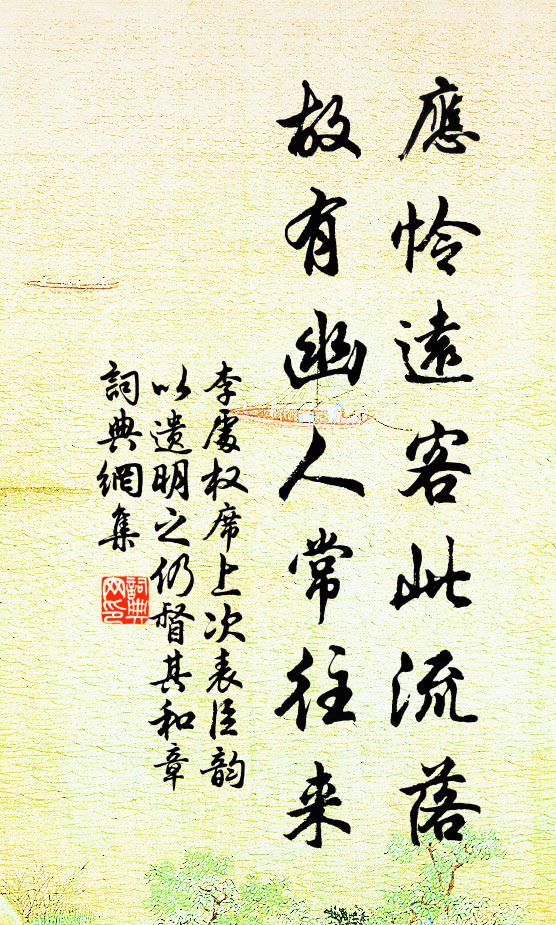 應怜遠客此流落
故有幽人常往来
李處权席上次表臣韵
以遗明之仍督其和章
詞典網集
詞典网印